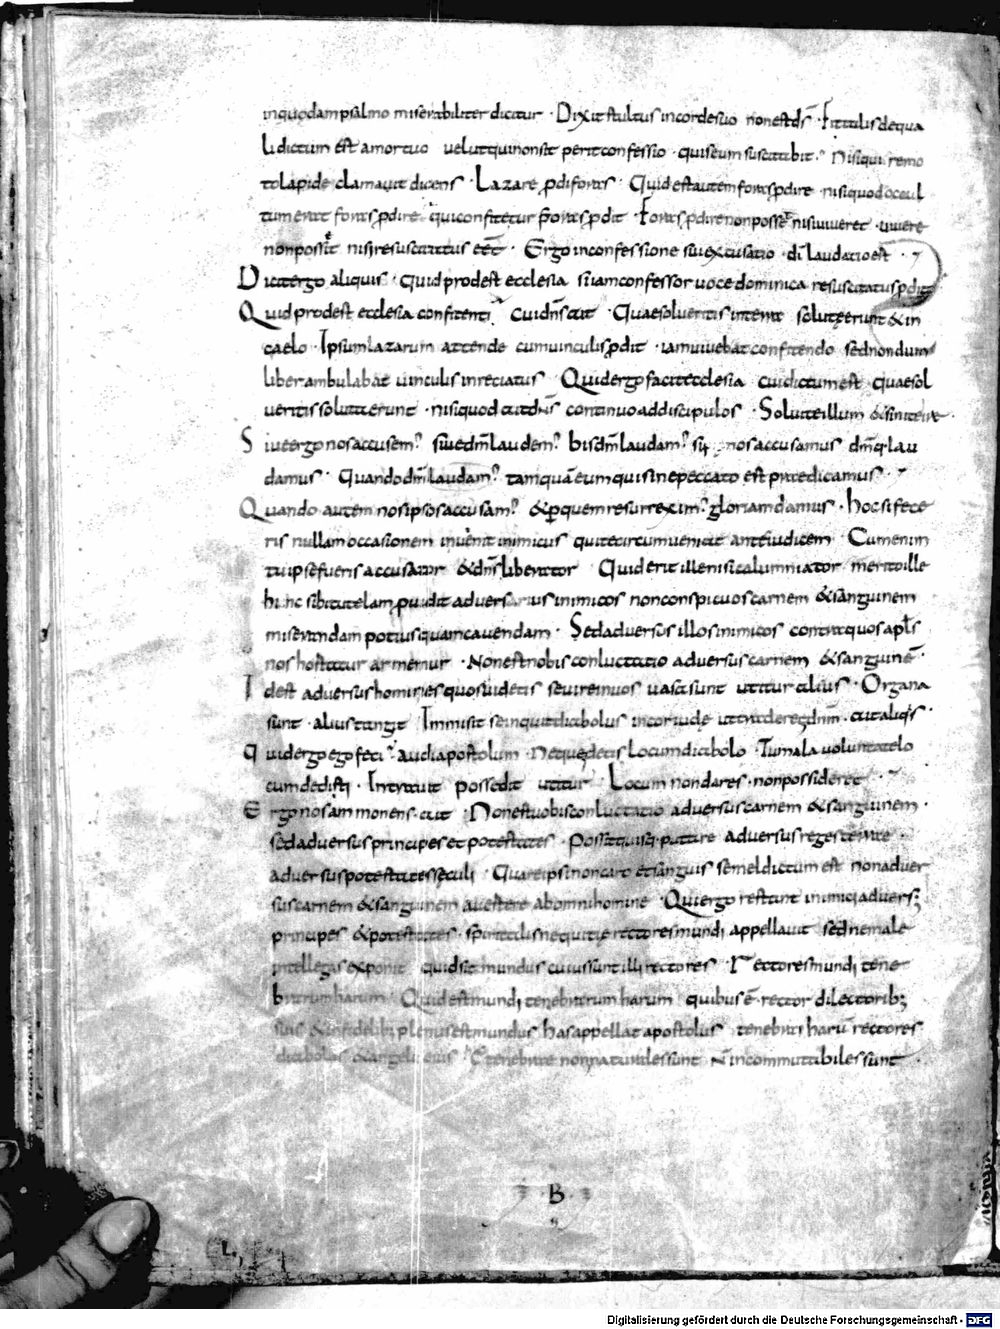 inquodam psalmo miserabiliter dicitur · Dixit stultus incordesuo nonest d̄s · Fit talis dequa
li dictum est amortuo velut quinonsit perit confessio · quis eum suscitabit · Nisi qui remo
tolapide clamauit dicens · Lazare prodi foras · Quid est autem foras prodire · nisi quod occul
tum erat foras prodire · qui confitetur foras prodit · Foras prodire nonposset nisi uiueret · uiuere
nonposset nisi resuscitatus eēt · Ergo inconfessione sui excusatio · dī laudatio est ·
Dicit ergo aliquis · quid prodest ecclesia si iam confessor uoce dominica resuscitatus prodit
Quid prodest ecclesia confitenti cui dn̄s ait · Quae solueritis in terra soluta erunt & in
caelo · Ipsum lazarum attende cum uinculis prodit · iam uiuebat confitendo sed nondum
liber ambulabat uinculis inretiatus · Quid ergo facit ecclesia cui dictum est · quae sol
ueritis soluta erunt · nisi quod ait dn̄s continuo ad discipulos · Soluite illum & sinite
Siue ergo nos accusem' siue dm̄ laudem' bis dm̄ laudam' si nos accusamus dm̄q; lau
damus · Quando dm̄ laudam' tamquā eum qui sine peccato est praedicamus ·
Quando autem nos ipsos accusam' & per quem resurrexim' gloriam damus · hoc si fece
ris nullam occasionem inuenit inimicus qui te circumueniat ante iudicem · Cum enim
tu ipse fueris accusator & dn̄s liberator Quid erit ille nisi calumniator merito ille
hinc sibi tutelam prouidit aduersarius inimicos non conspicuos carnem & sanguinem
miserandam potius quam cauendam · Sed aduersus illos inimicos contra quos apl̄s
nos hostatur armemur · Non est nobis conluctatio aduersus carnem & sanguinē ·
Id est aduersus homines quos uidetis seuire in uos uasa sunt utitur alius · Organa
sunt · alius tangit Immisit se inquit diabolus in cor iudę ut traderet dn̄m · ait aliq's
Quid ergo ego feci · Audi apostolum · Neque detis locum diabolo · Tu mala uoluntate lo
cum dedisti · Intrauit possedit utitur · Locum non dares · non possideret ·
Ergo nos ammonens · ait Non est uobis conluctatio aduersus carnem & sanguinem ·
sed aduersus principes et potestates · Posset quisq; putare aduersus reges terrae ·
aduersus potestates sęculi · Quare ipsi non caro et sanguis semel dictum est non aduer
sus carnem & sanguinem auertere ab omni homine · Qui ergo restant inimici aduers;
principes & potestates · spiritalis nequitiae rectores mundi appellauit sed ne male
intellegas exponit quid sit mundus cuius sunt illi rectores · Rectores mundi tene
brarum harum · Quid est mundi tenebrarum harum quibus ē rector dilectorib;
suis & infidelib; plenus est mundus has appellat apostolus tenebras harū rectores
diabolus & angeli eius tenebrae non naturales sunt N̄ incommutabiles sunt ·
· B ·
Digitalisierung gefördert durch die Deutsche Forschungsgemeinschaft - DFG